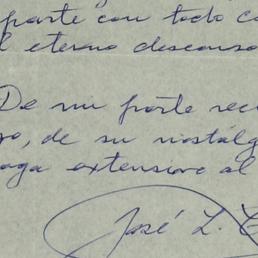 parte con todo co
l eterno descanso
De mi parte reci
yo, de su nostálg
aga extensivo al
José L. C